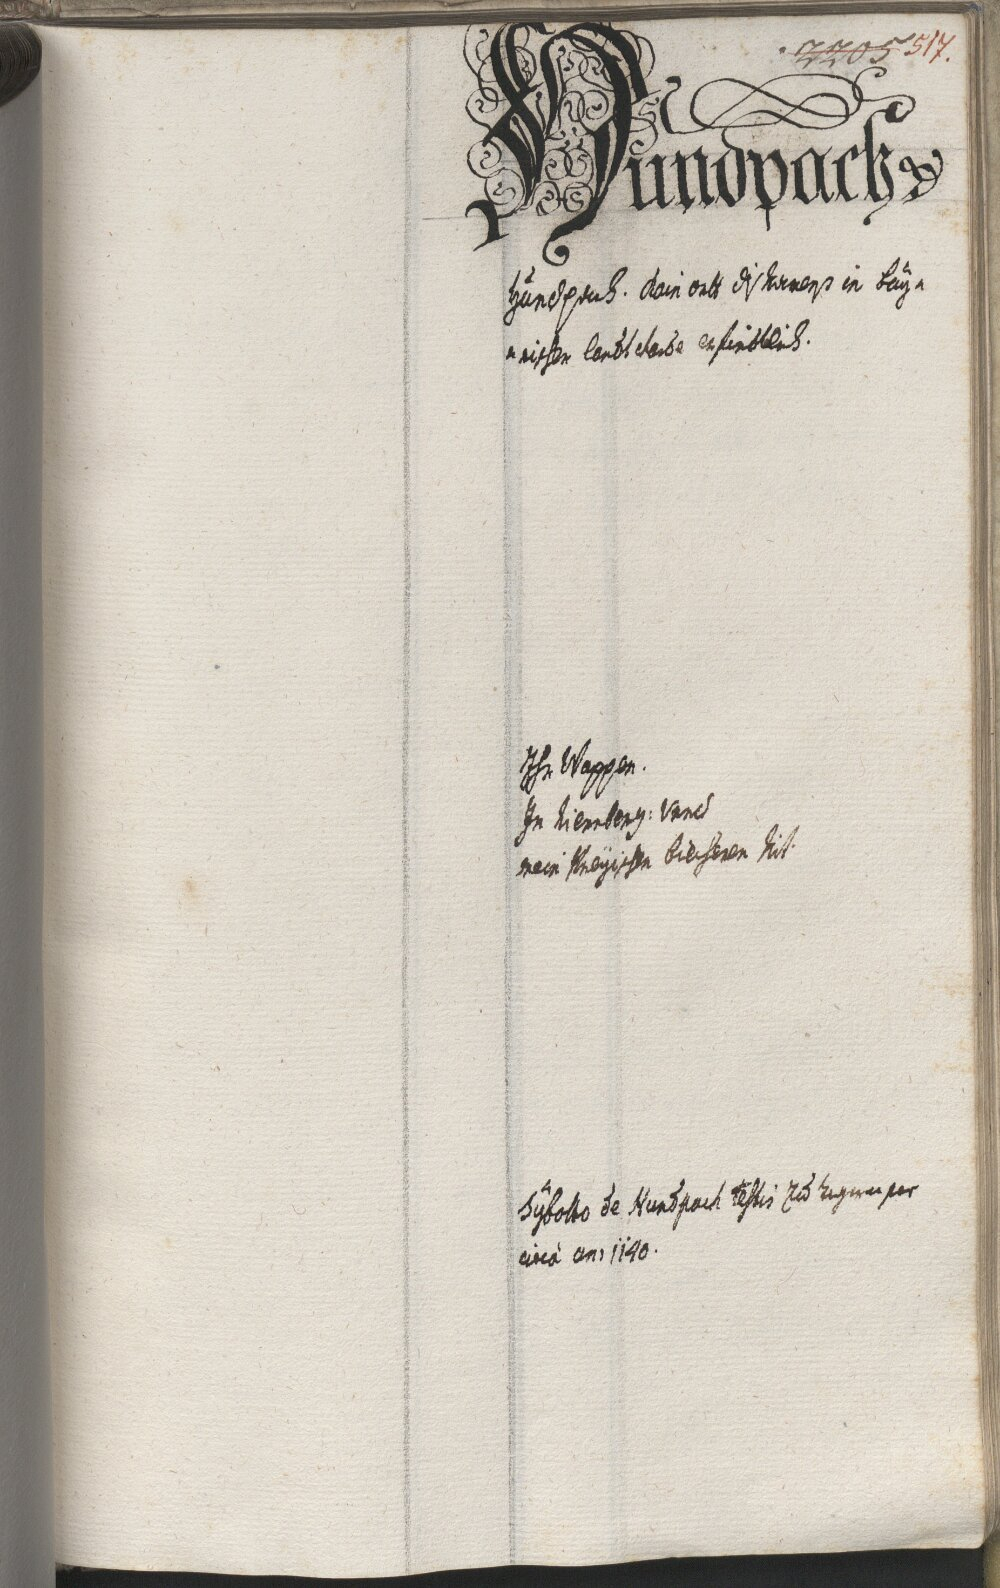 2205 517.
Hundpach
Hundpach. kain ortt diß namens in Bay=
=rischen landts erfindtlich.
Ihr Wappen.
In Niernberg: Vnnd
mein Preyischen büecheren nit.
Sÿbotto de Hundpach testis
circa an: 1140.